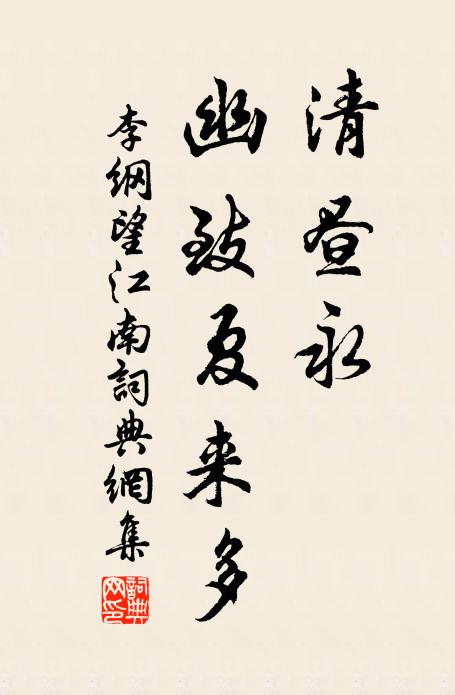 清昼永
幽致夏来多
李纲望江南詞典網集
詞典网印